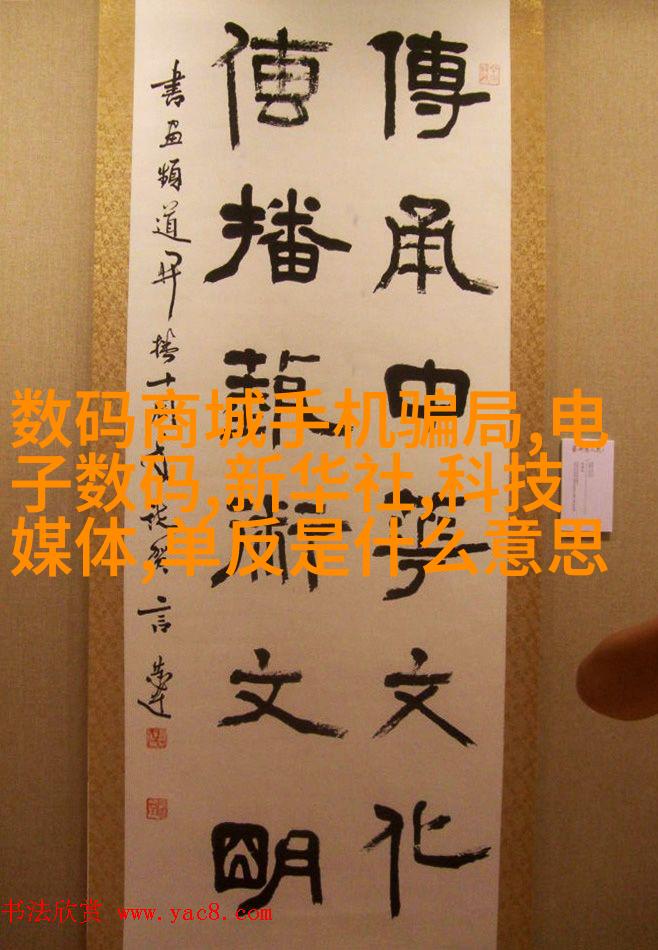 傳承中華文化
傳播藝術文明
書画頻道開播十周年
言
数码商城手机骗局,电
子数码,新华社,科技
媒体,单反是什么意思
书法欣赏 www.yac8.com